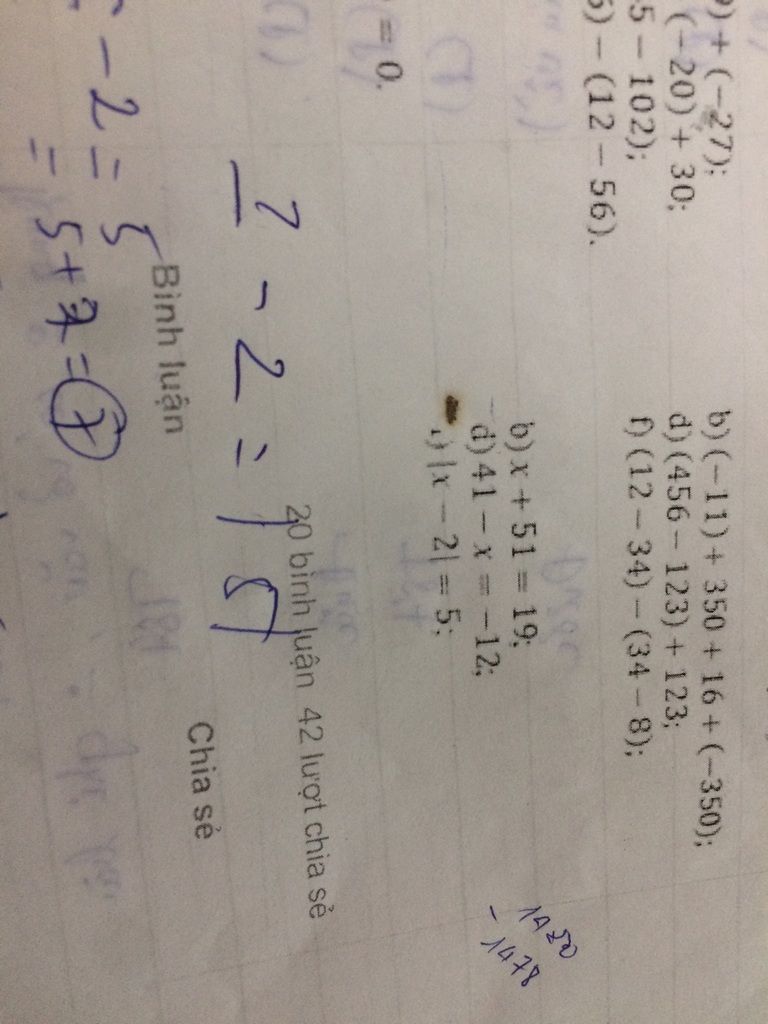 9) + (−27);
(−20) + 30;
5 − 102);
6) − (12 − 56).
b) (−11) + 350 + 16 + (−350);
d) (456 − 123) + 123;
f) (12 − 34) − (34 − 8);
= 0.
b) x + 51 = 19;
d) 41 − x = −12;
|x − 2| = 5;
1420
- 1478
20 bình luận 42 lượt chia sẻ
7 - 2 =
Bình luận
Chia sẻ
- 2 = 5
= 5 + 2 = 7